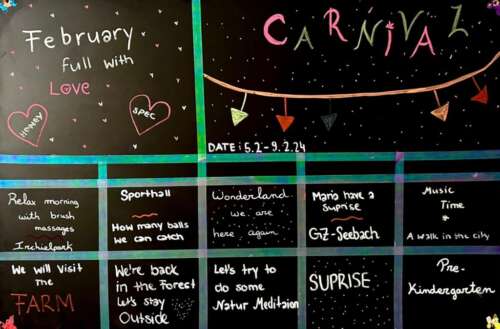 February
full with
Love
Honey
Spec
CARNIVAL
DATE: 5.2 - 9.2.24
Relax morning
with brush
massages
Irchelpark
Sporthall
How many balls
we can catch
Wonderland
we are
here again
Mario have a
suprise
GZ-Seebach
Music
Time
&
A walk in the city
We will visit
the
FARM
We're back
in the Forest
Let's stay
Outside
Let's try to
do some
Natur Meditaion
SUPRISE
Pre-
Kindergarten